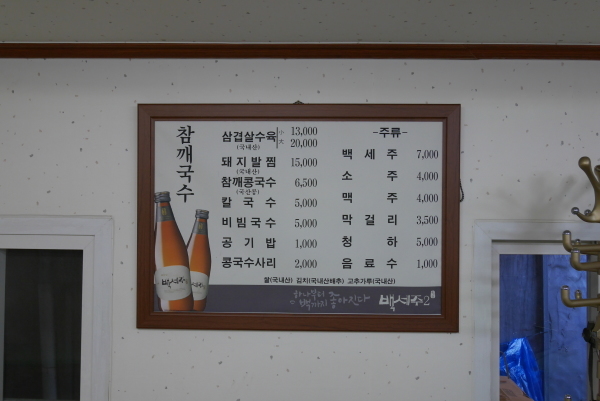 참깨국수
삼겹살수육 小 13,000
(국내산) 大 20,000
돼지발찜 15,000
(국내산)
참깨콩국수 6,500
(국산콩)
칼국수 5,000
비빔국수 5,000
공기밥 1,000
콩국수사리 2,000
-주류-
백세주 7,000
소주 4,000
맥주 4,000
막걸리 3,500
청하 5,000
음료수 1,000
쌀(국내산) 김치(국내산배추) 고추가루(국내산)
하나부터
백까지 좋아진다
백세주